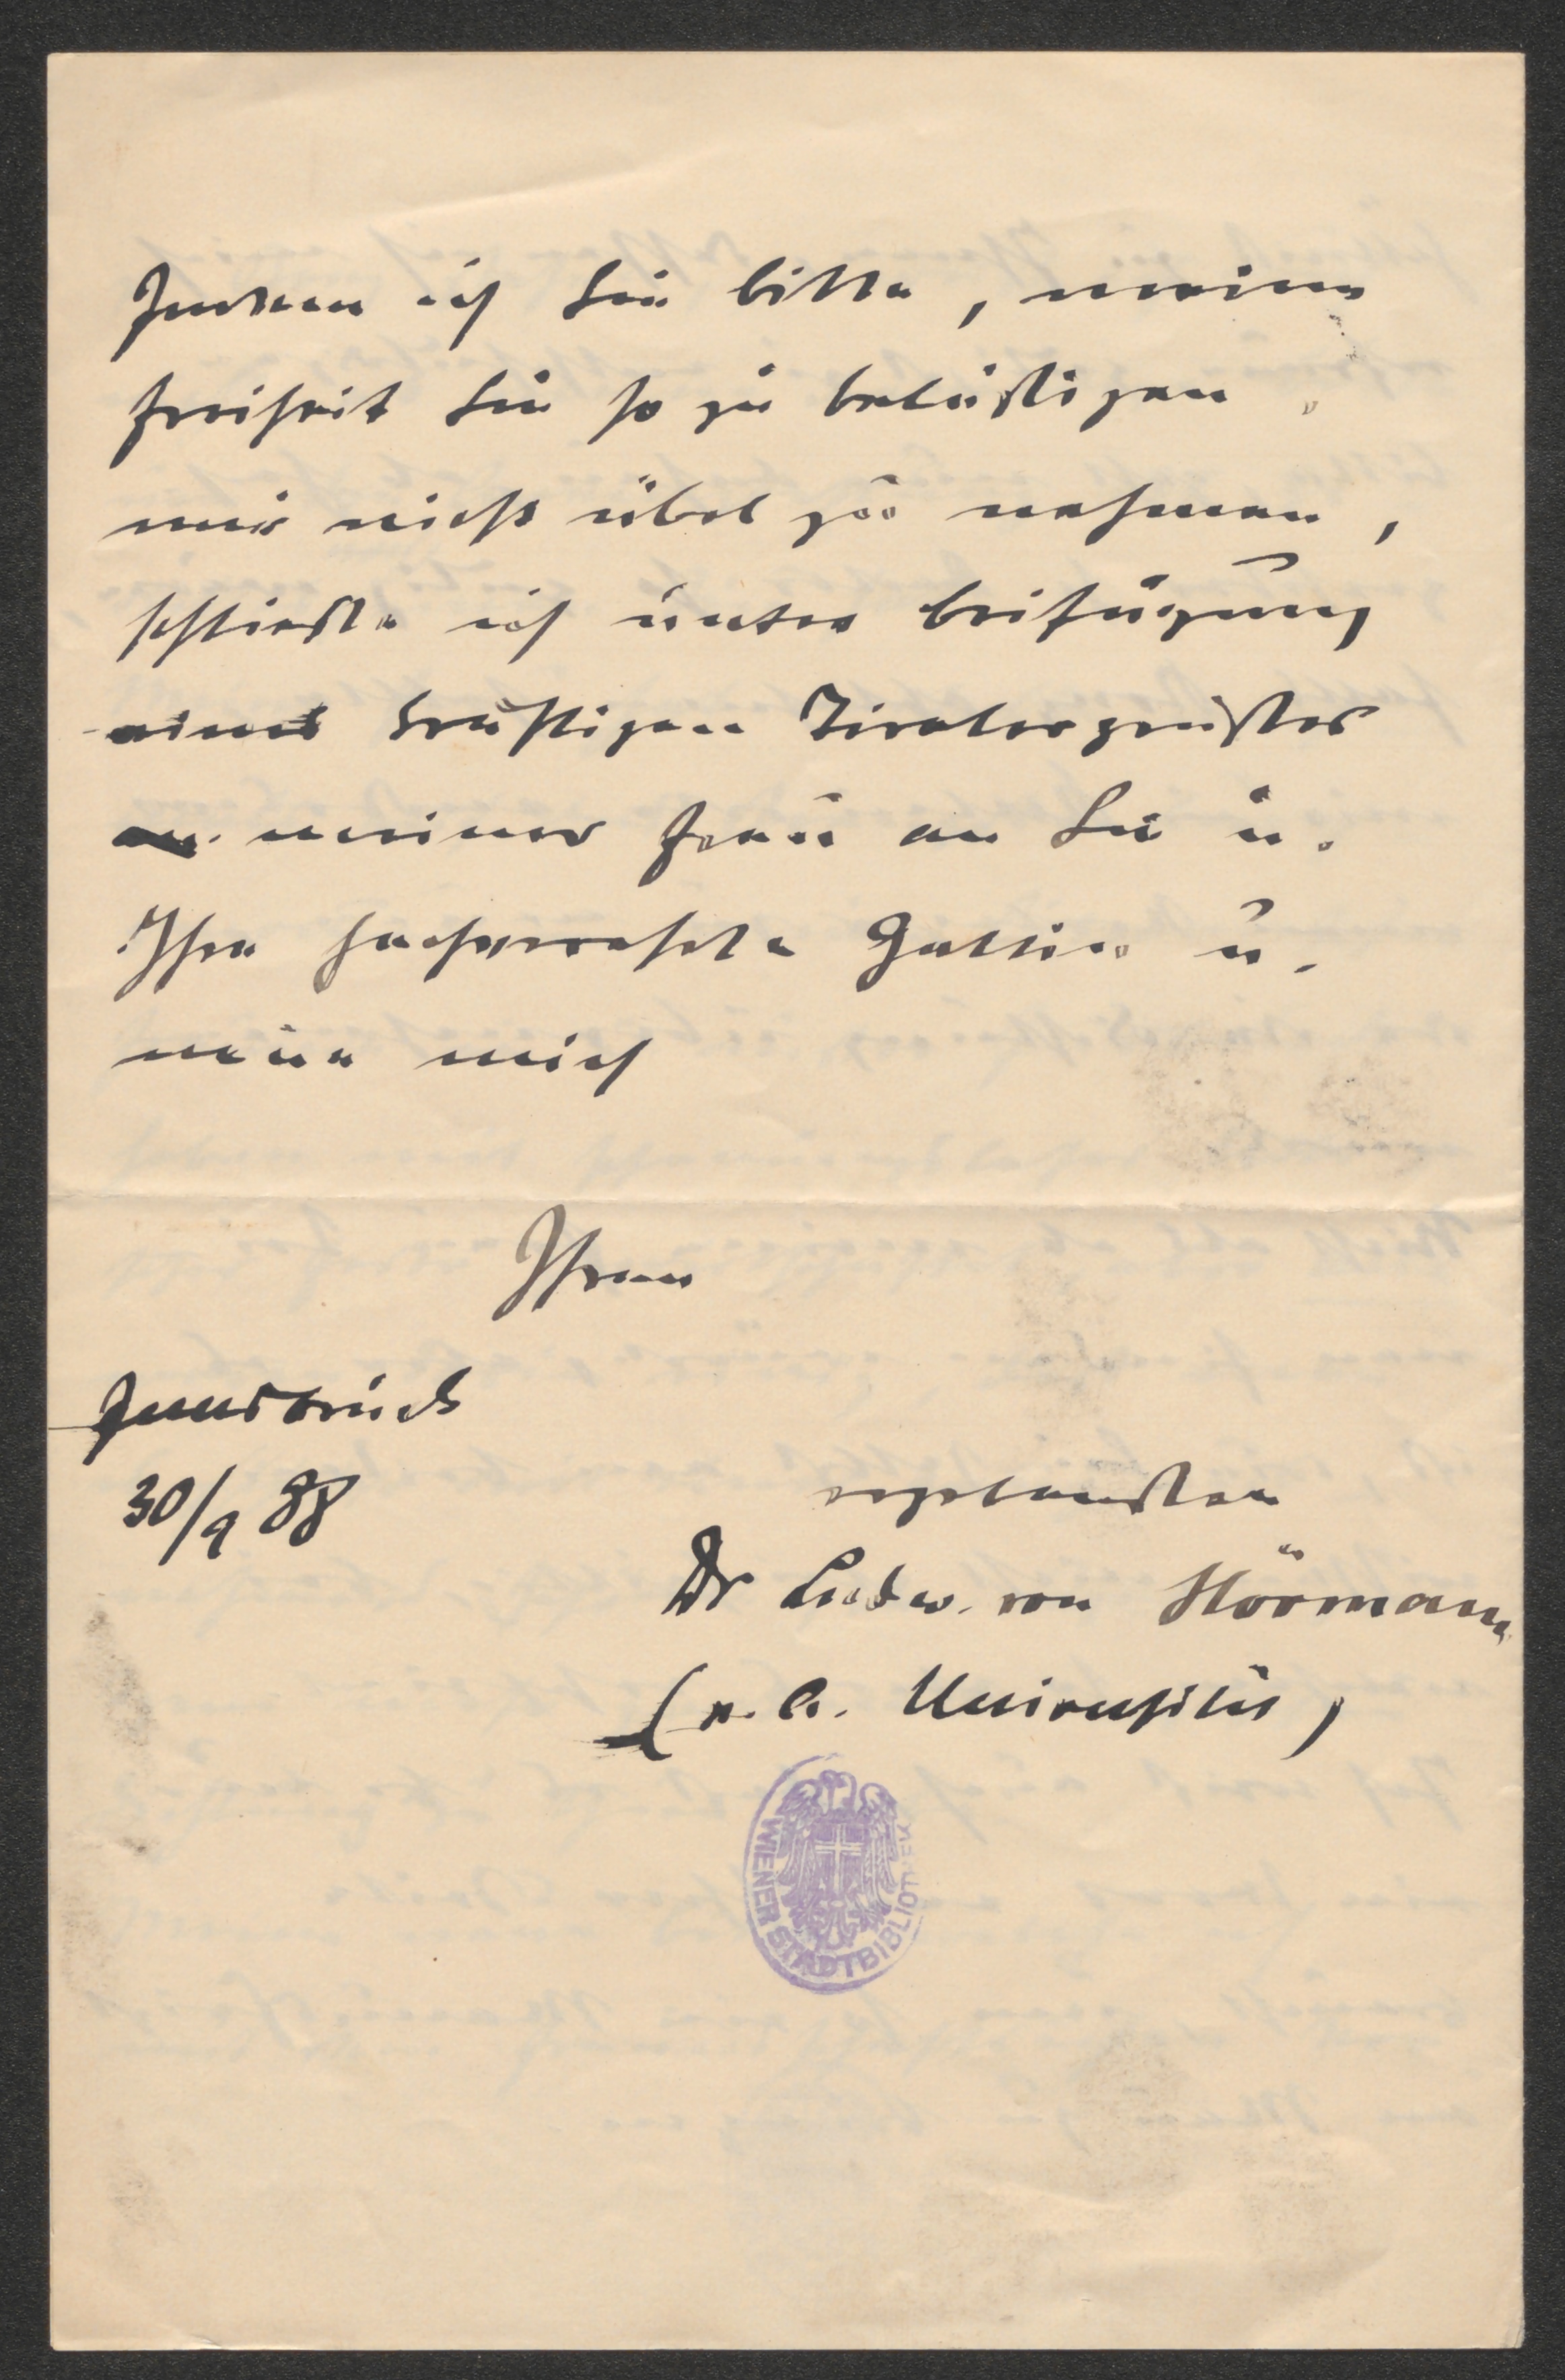 Indem ich Sie bitte, meine
Freiheit Sie so zu belästigen,
mir nicht übel zu nehmen,
schließe ich unter Beifügung
eines kräftigen Tirolergrußes
meiner Frau an Sie u.
Ihre hochverehrte Gattin u.
nenne mich
Ihren
Innsbruck
30/9 88
ergebensten
Dr Ludw. von Hörmann
(k. k. Universität)
WIENER STADTBIBLIOTHEK